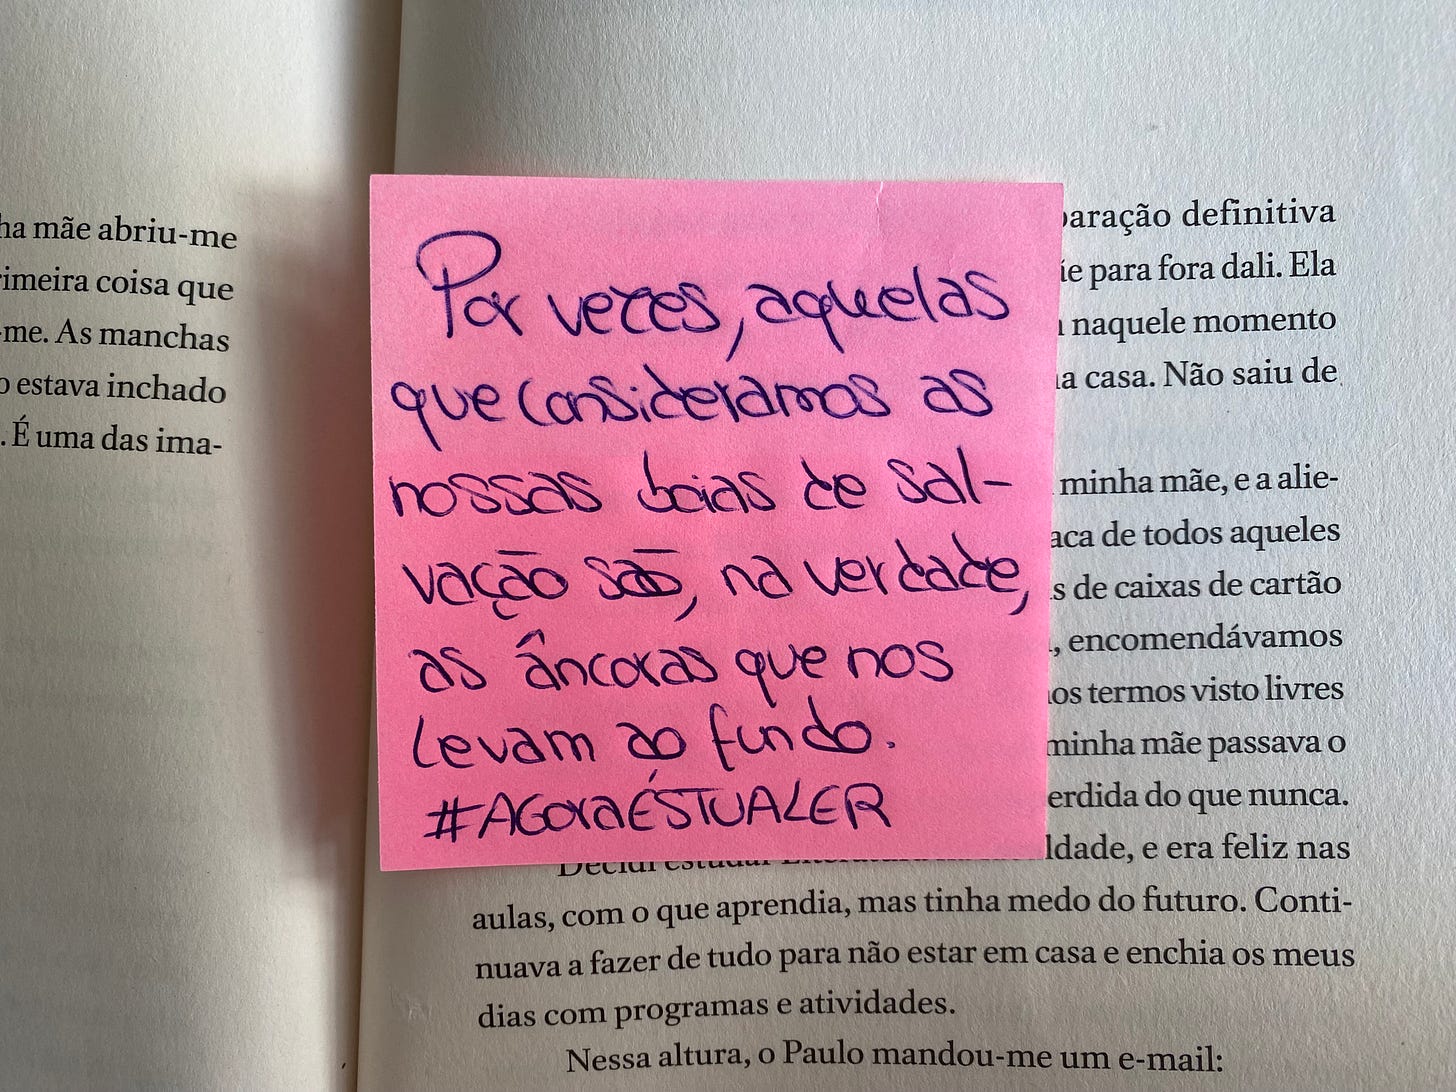 ha mãe abriu-me
rimeira coisa que
-me. As manchas
o estava inchado
. É uma das ima-
Por vezes, aquelas
que consideramos as
nossas boias de sal-
vação são, na verdade,
as âncoras que nos
levam ao fundo.
#AGORAÉSTUALER
paração definitiva
ie para fora dali. Ela
naquele momento
a casa. Não saiu de
minha mãe, e a alie-
aca de todos aqueles
s de caixas de cartão
, encomendávamos
os termos visto livres
minha mãe passava o
erdida do que nunca.
Decidi estudar ldade, e era feliz nas
aulas, com o que aprendia, mas tinha medo do futuro. Conti-
nuava a fazer de tudo para não estar em casa e enchia os meus
dias com programas e atividades.
Nessa altura, o Paulo mandou-me um e-mail: